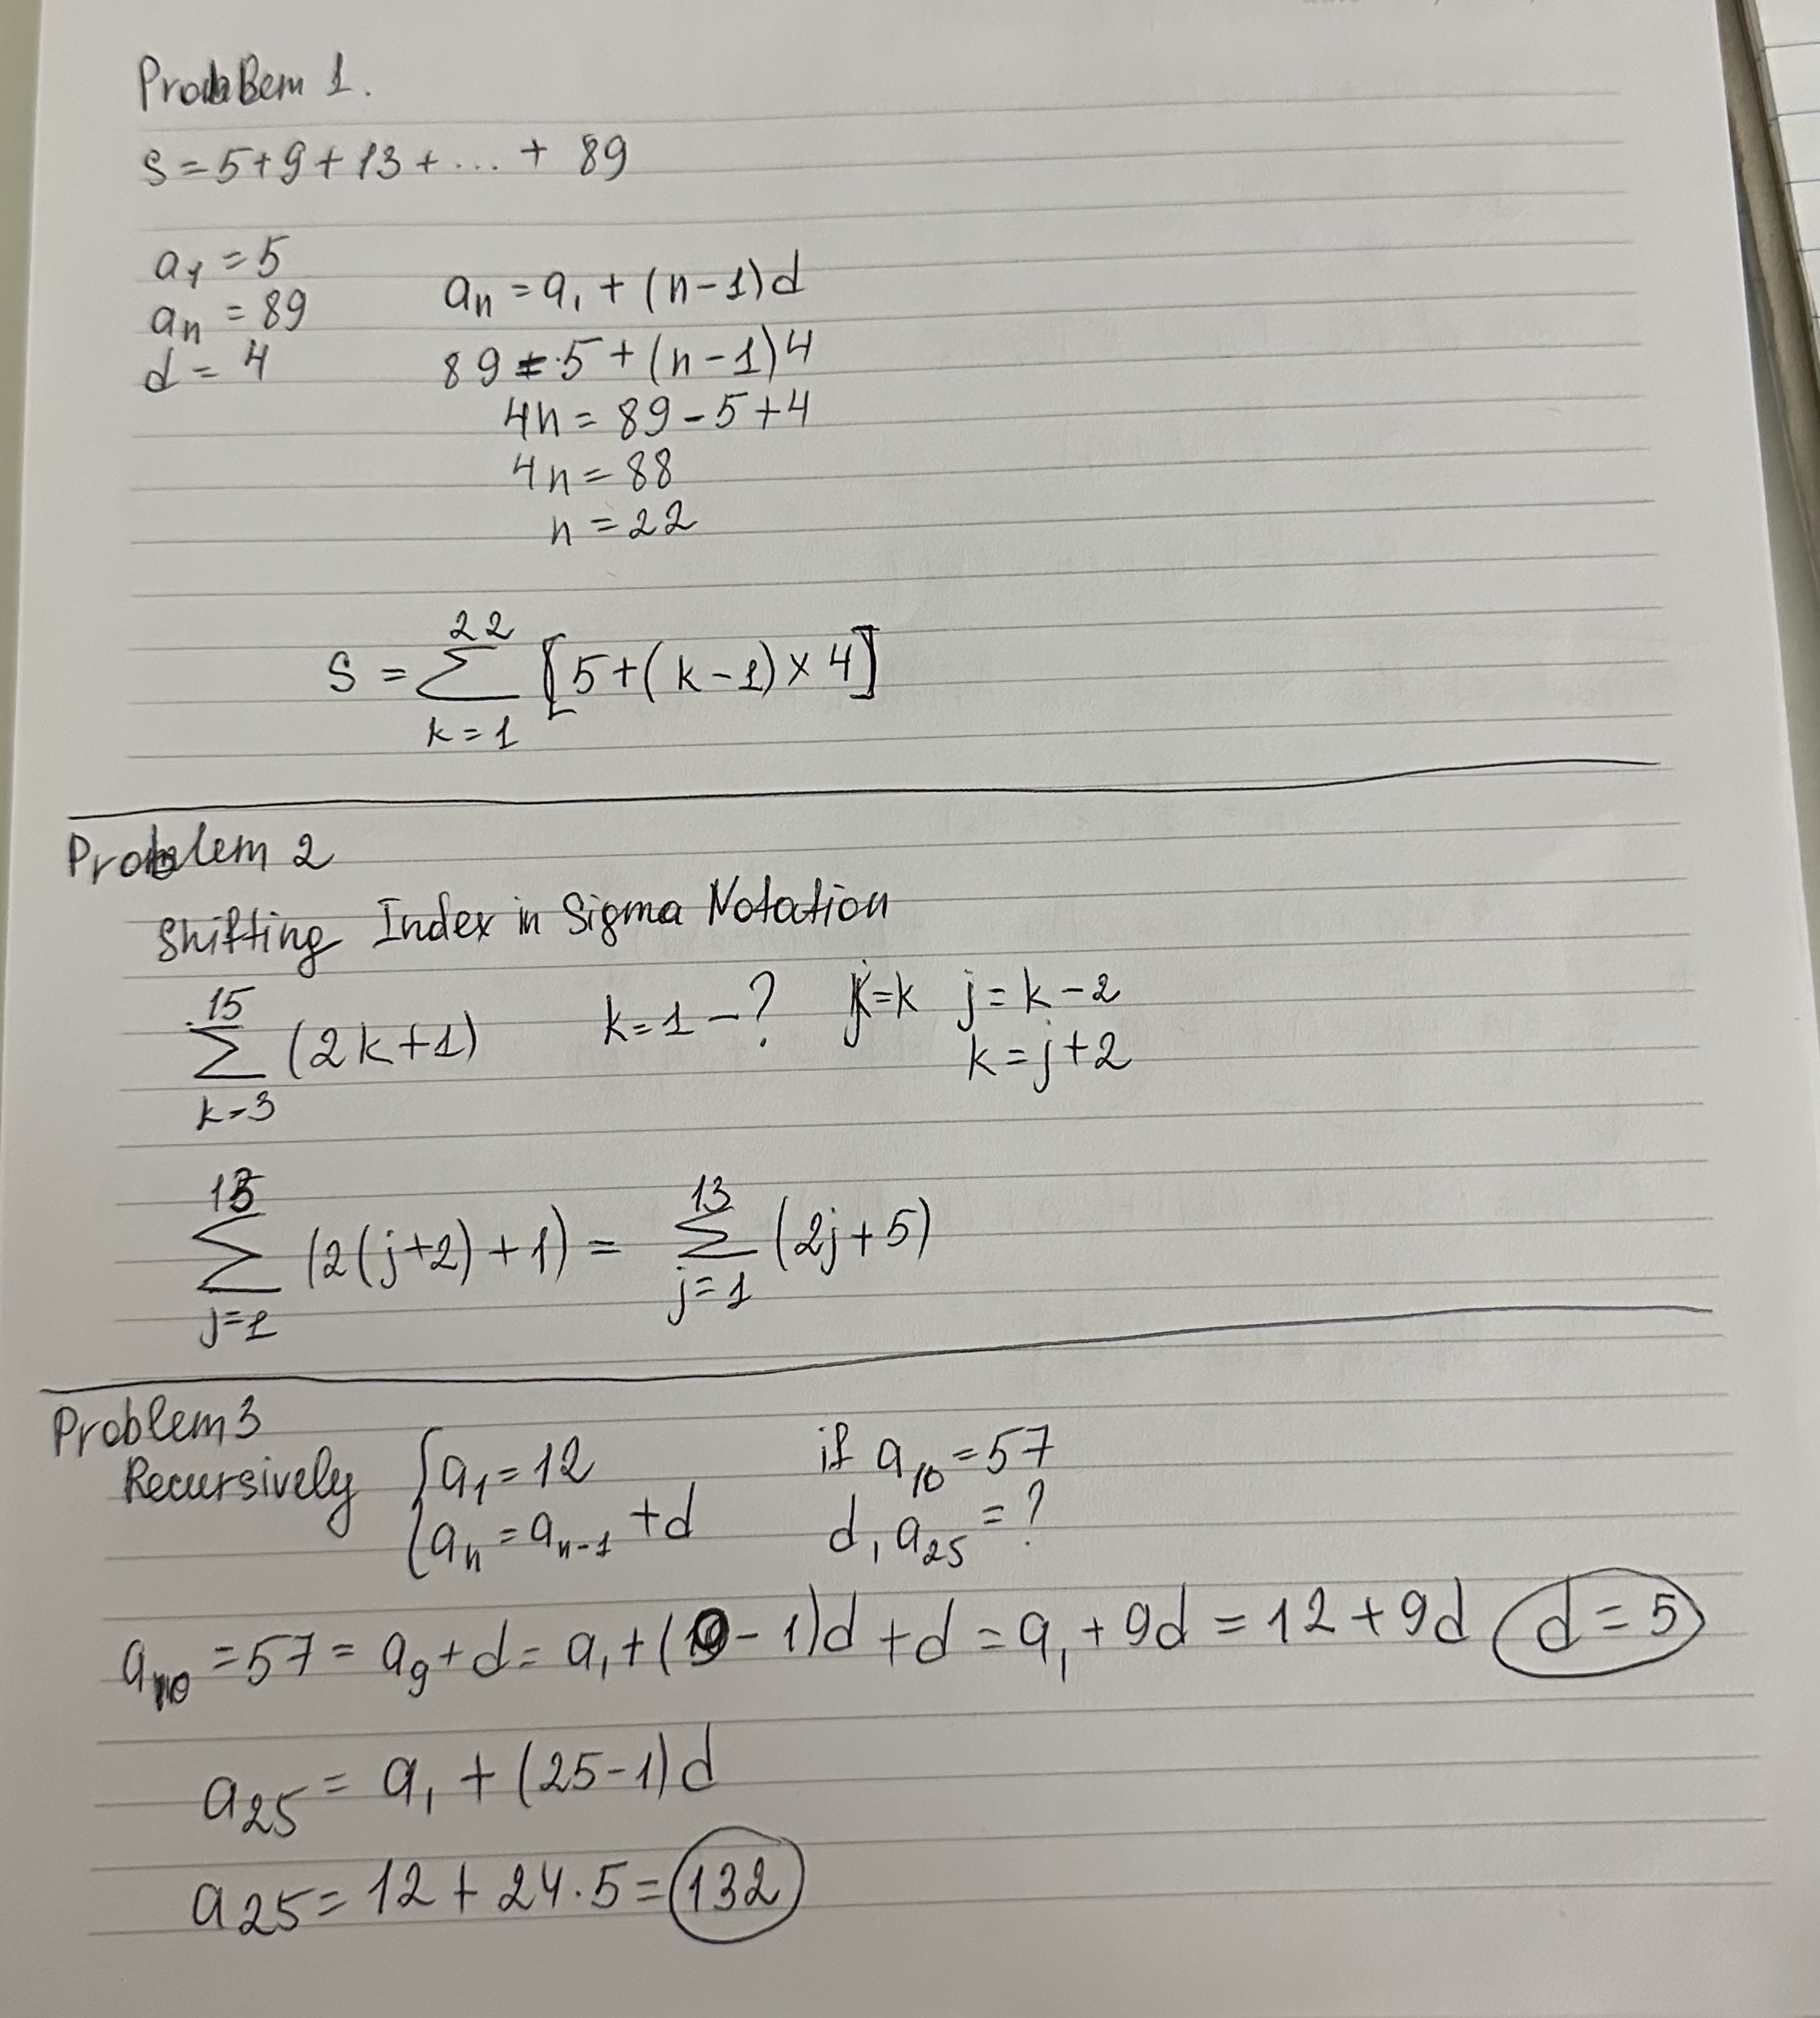 Problem 1.
S = 5 + 9 + 13 + ... + 89
a₁ = 5
aₙ = 89
d = 4
aₙ = a₁ + (n-1)d
89 = 5 + (n-1)4
4n = 89 - 5 + 4
4n = 88
n = 22
S = ∑_{k=1}^{22} [5 + (k-1) × 4]
Problem 2
Shifting Index in Sigma Notation
∑_{k=3}^{15} (2k+1) k=1 - ? j=k j = k-2
k = j+2
∑_{j=1}^{13} (2(j+2)+1) = ∑_{j=1}^{13} (2j+5)
Problem 3
Recursively { a₁ = 12 if a₁₀ = 57
aₙ = aₙ₋₁ + d d, a₂₅ = ?
a₁₀ = 57 = a₉ + d = a₁ + (9-1)d + d = a₁ + 9d = 12 + 9d d = 5
a₂₅ = a₁ + (25-1)d
a₂₅ = 12 + 24·5 = 132